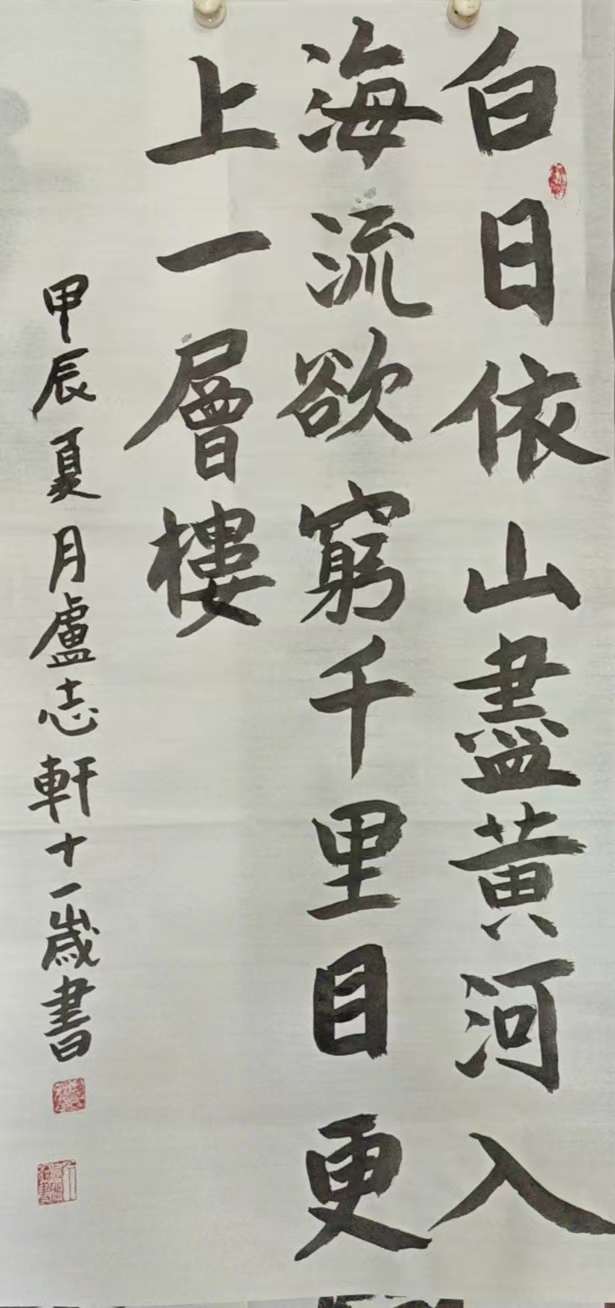 白日依山盡黄河入
海流欲窮千里目更
上一層樓
甲辰夏月盧志軒十一歲書